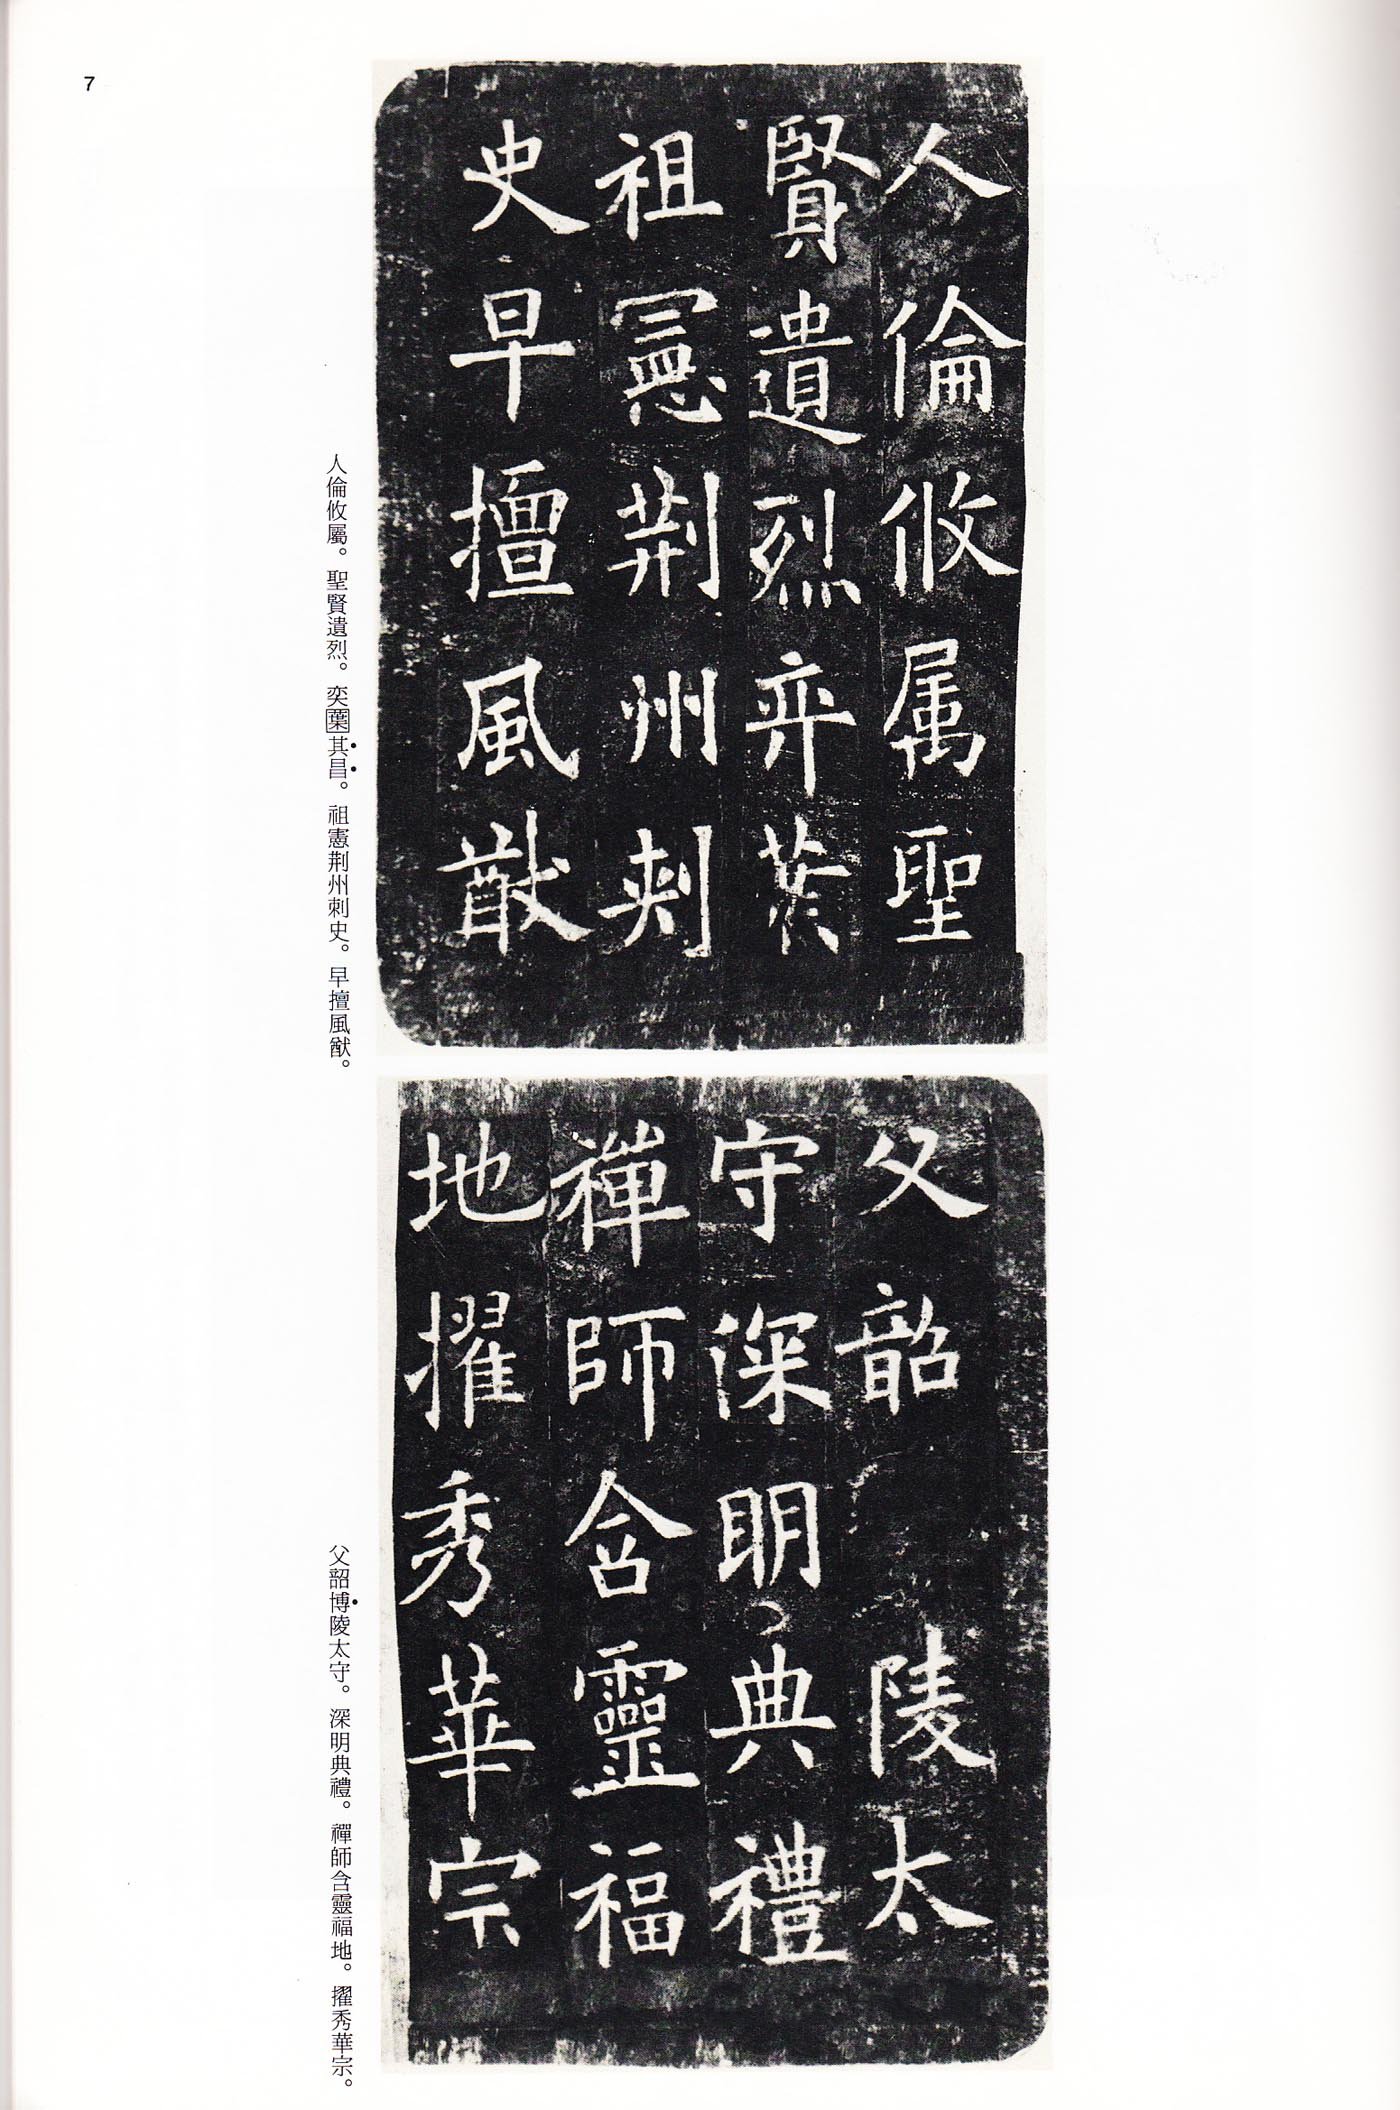 7
人倫攸属聖
賢遺烈弈葉
祖憲荆州刺
史早擅風猷
人倫攸屬。聖賢遺烈。奕葉其昌。祖憲荆州刺史。早擅風猷。
父韶陵太
守深明典禮
禪師含靈福
地擢秀華宗
父韶博陵太守。深明典禮。禪師含靈福地。擢秀華宗。